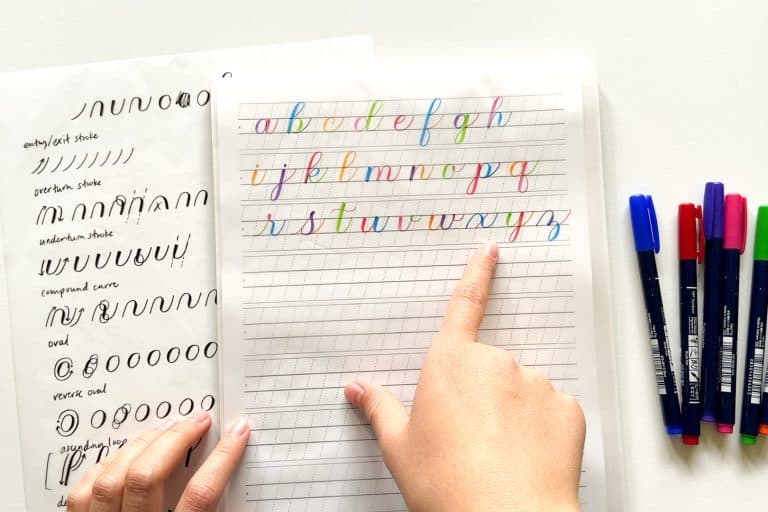 entry/exit stroke
overturn stroke
underturn stroke
compound curve
oval
reverse oval
ascending loop
a b c d e f g h
i j k l m n o p q
r s t u v w x y z